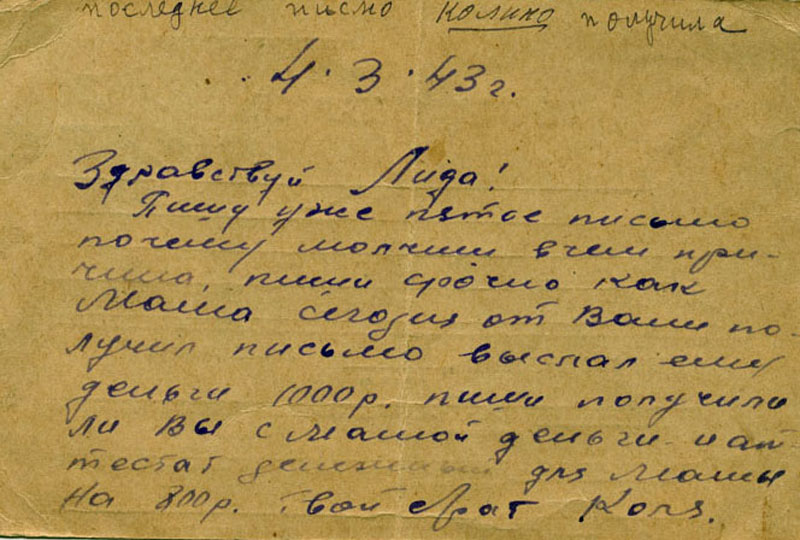 последнее писмо Колино получила
4.3.43 г.
Здравствуй Лида!
Пишу уже пятое письмо
почему молчиш вчем при-
чина, пиши срочно как
Маша сегодня от Вани по-
лучил письмо выслал ему
деньги 1000 р. пиши получили
ли Вы с Машой деньги и ат-
тестат денежный для Маши
на 800 р. Твой брат Коля.